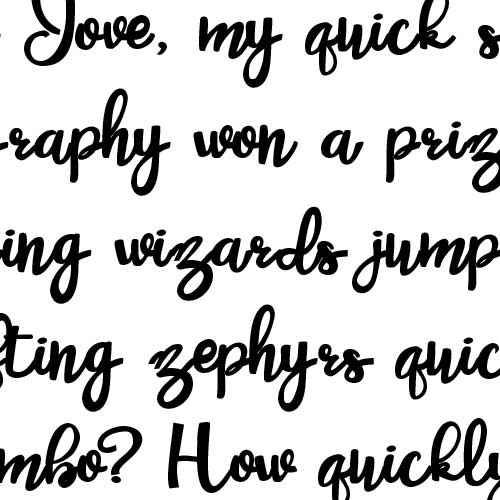 Jove, my quick s
raphy won a priz
ing wizards jump
fting zephyrs quic
mbo? How quickly